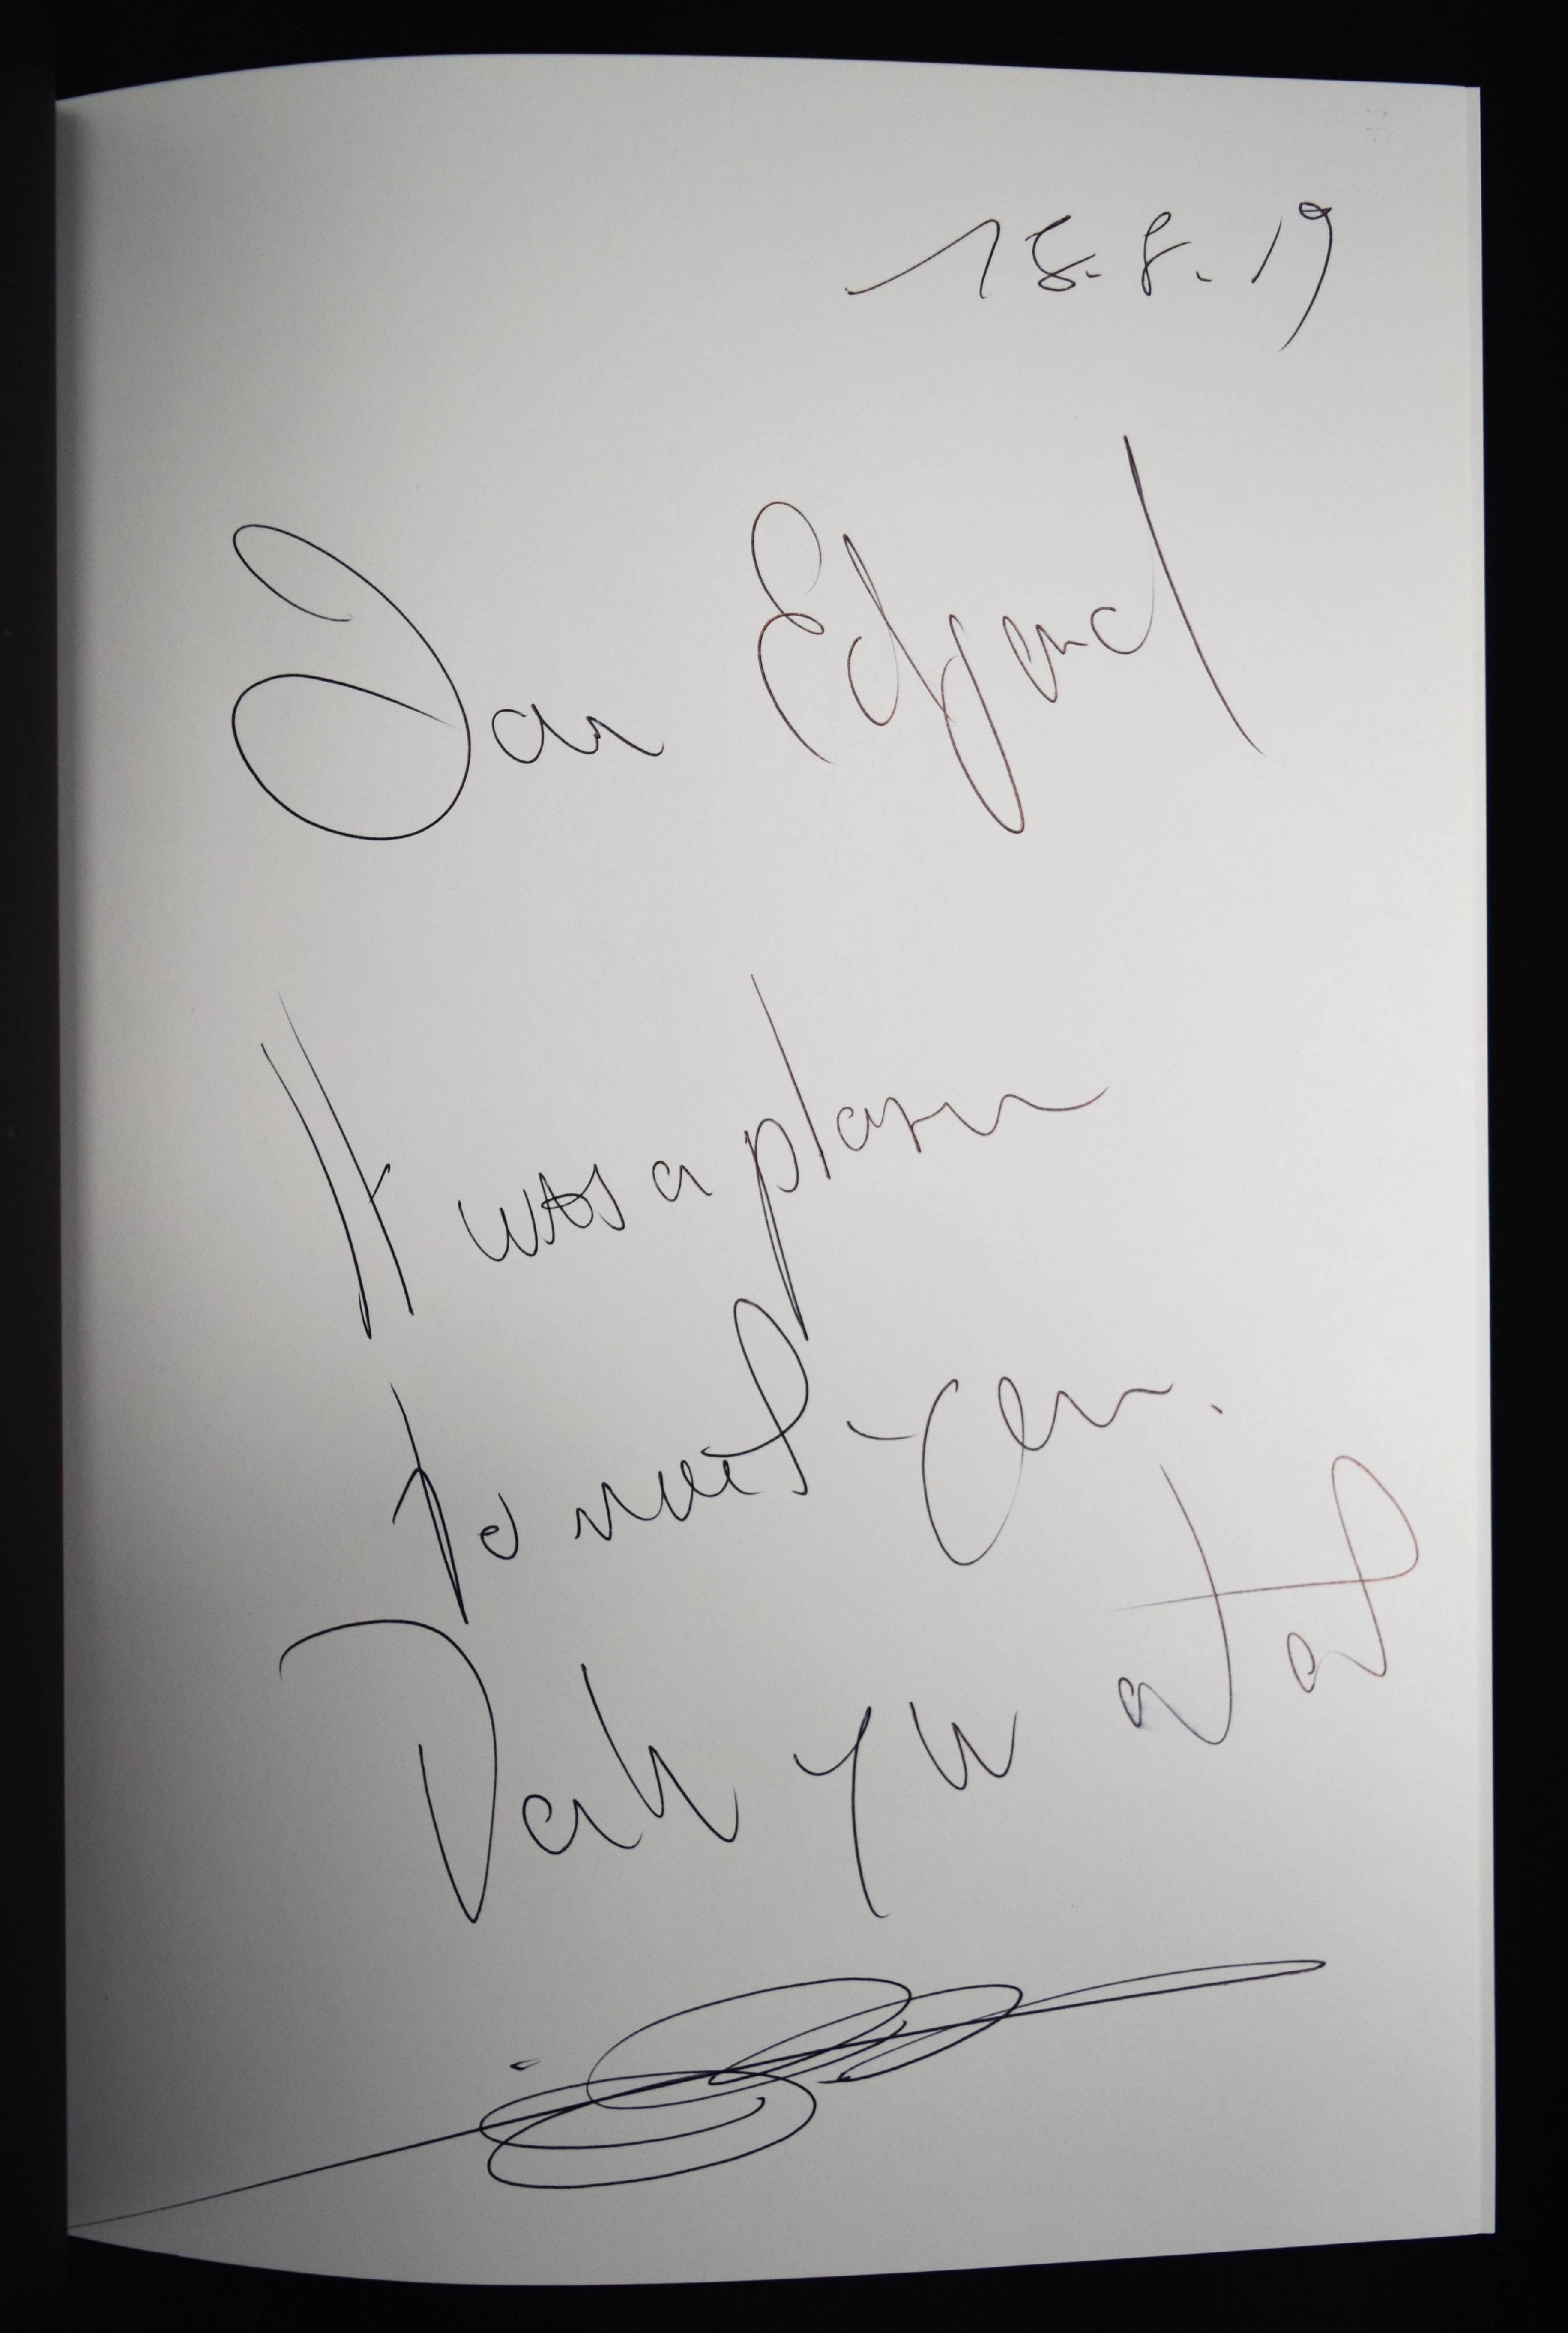 18.8.19
Dear Edgard
It was a pleasure
to meet you.
Thank you a lot